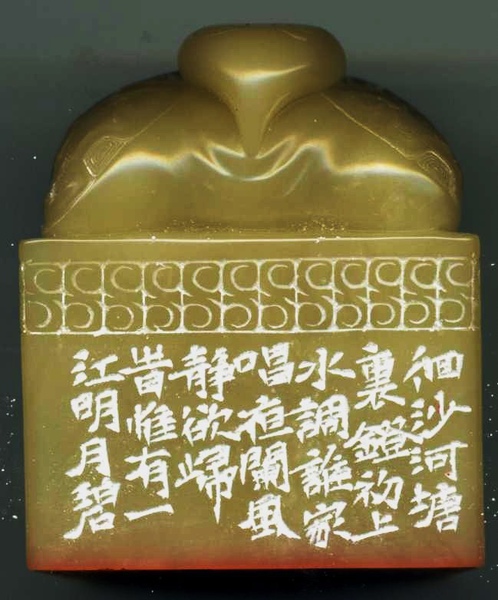 徊沙河塘
裏鐙初上
水調誰家
唱夜闌風
静欲歸
旹惟有一
江明月碧